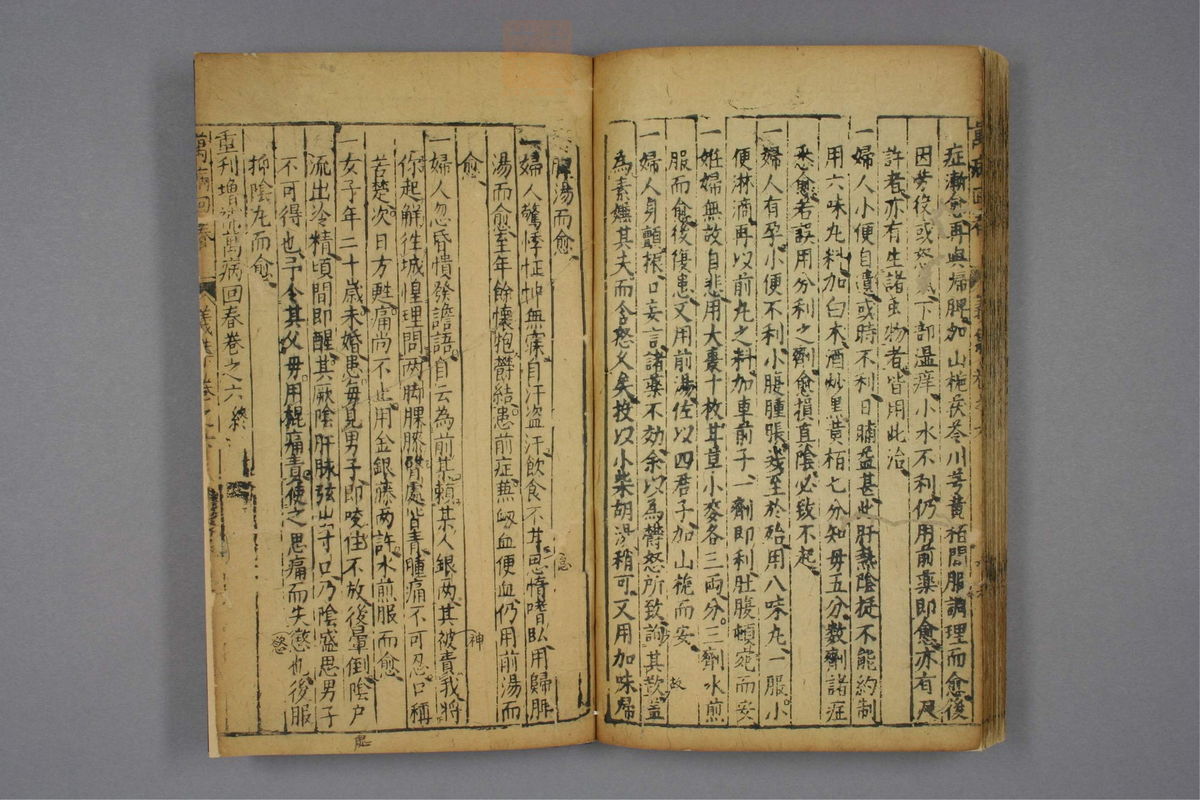 症漸愈再與歸脾加山梔茯苓川芎黃栢間服調理而愈後
因勞役或怒氣下部濕痒小水不利仍用前藥即愈亦有尺
許者亦有生諸虫物者皆用此治
一婦人小便自遺或時不利日晡益甚此肝熱陰挺不能約制
用六味丸料加白木酒炒黑黃栢七分知毋五分數劑諸症
悉愈若誤用分利之劑愈損真陰必致不起
一婦人有孕小便不利小腹腫脹幾至於殆用八味丸一服小
便淋滴再以前丸之料加車前子一劑即利肚腹頓寬而安
一姙婦無故自悲用大棗十枚甘草小麥各三兩分三劑水煎
服而愈後復患又用前湯佐以四君子加山梔而安
一婦人身顫振口妄言諸藥不効余以為欝怒所致詢其故蓋
為素嫌其夫而含怒久矣投以小柴胡湯稍可又用加味歸
脾湯而愈
一婦人驚悸怔忡無寐自汗盗汗飲食不甘思惰嗜臥用歸脾
湯而愈至年餘懷抱欝結患前症兼衂血便血仍用前湯而
愈
一婦人忽昏憒發譫語自云為前某賴某人銀兩其被責我將
你起解徃城惶理問两脚踝膝臀處皆青腫痛不可忍口稱
苦楚次日方甦痛尚不止用金銀藤两許水煎服而愈
一女子年二十歲未婚患毎見男子即咬住不放後暈倒陰户
流出冷精頃間即醒其厥陰肝脉弦出寸口乃陰盛思男子
不可得也予令其父毋用棍痛責使之思痛而失慾也後服
抑陰丸而愈
重刋增補萬病回春卷之六終
萬病回春
神
慾